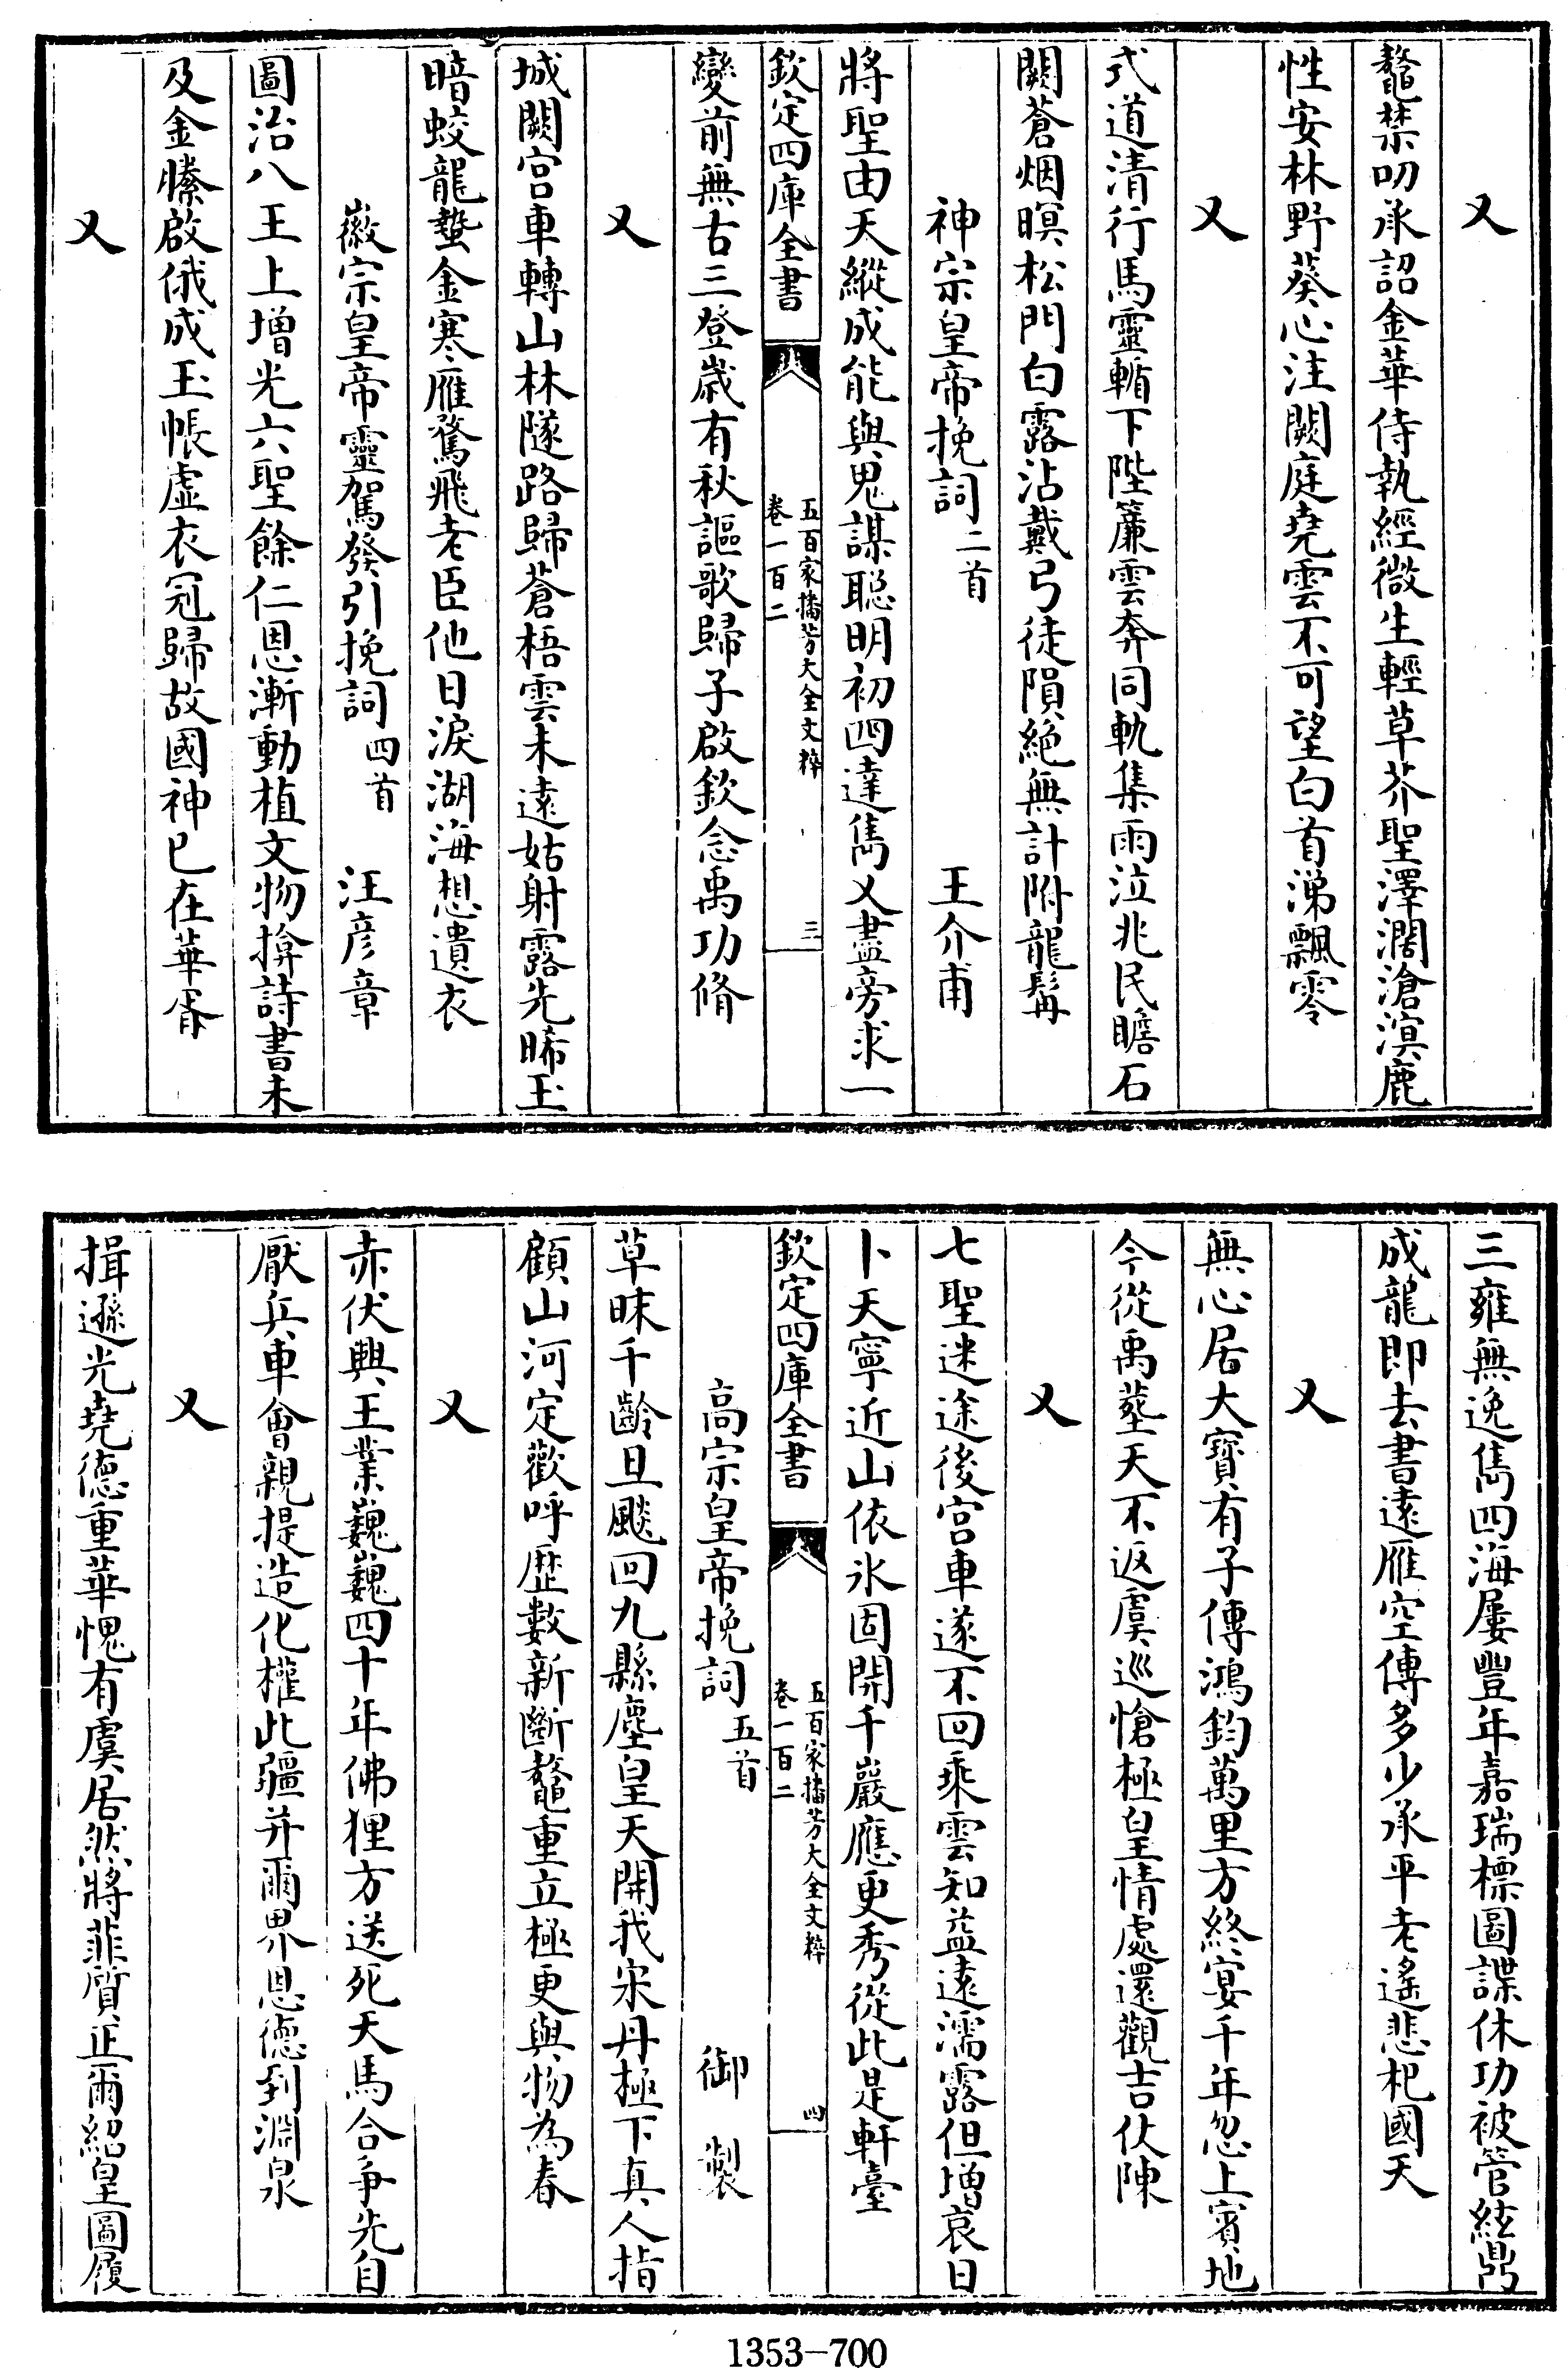 又
鼇禁叨承詔金華侍執經微生輕草芥聖澤濶滄溟鹿
性安林野葵心注闕庭堯雲不可望白首涕飄零
又
式道清行馬靈輴下陛簾雲奔同軌集雨泣兆民瞻石
闕蒼烟暝松門白露沾戴弓徒隕絶無計附龍髯
神宗皇帝挽詞二首 王介甫
將聖由天縱成能與鬼謀聰明初四達雋乂盡旁求一
欽定四庫全書
五百家播芳大全文粹
卷一百二
三
變前無古三登歲有秋謳歌歸子啟欽念禹功脩
又
城闕宫車轉山林隧路歸蒼梧雲未遠姑射露先晞玉
暗蛟龍蟄金寒雁鶩飛老臣他日淚湖海想遺衣
徽宗皇帝靈駕發引挽詞四首 汪彦章
圖治八王上增光六聖餘仁恩漸動植文物揜詩書未
及金縢啟俄成玉帳虚衣冠歸故國神已在華胥
又
三雍無逸雋四海屢豐年嘉瑞標圖諜休功被管絃鼎
成龍即去書遠雁空傳多少承平老遙悲杞國天
又
無心居大寳有子傳鴻鈞萬里方終宴千年忽上賓地
今從禹塟天不返虞巡愴極皇情處還觀吉仗陳
又
七聖迷途後宫車遂不回乘雲知益遠濡露但増哀日
卜天寧近山依永固開千巖應更秀從此是軒臺
欽定四庫全書
五百家播芳大全文粹
卷一百二
四
高宗皇帝挽詞五首 御製
草昧千齡旦颷回九縣塵皇天開我宋丹極下真人指
顧山河定歡呼歴數新斷鼇重立極更與物為春
又
赤伏興王業巍巍四十年佛狸方送死天馬合爭先自
厭兵車會親提造化權此疆并爾界恩德到淵泉
又
揖遜光堯德重華愧有虞居然將菲質正爾紹皇圖履
1353-700